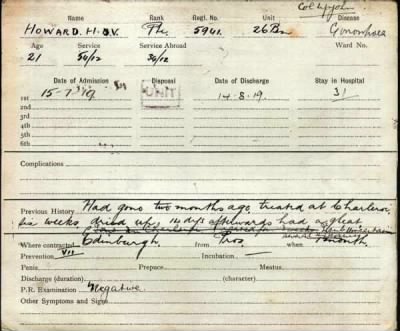 Col Upjohn
Name Rank Regl. No. Unit Disease
HOWARD. H. V. Pte. 5961. 26 Bn Gonorrhoea
Age Service Service Abroad Ward No.
21 50/12 36/12
Date of Admission Disposal Date of Discharge Stay in Hospital
1st 15-7-19 UNIT 14-8-19. 31
2nd
3rd
4th
5th
6th
Complications
Previous History Had gono two months ago, treated at Charleroi
six weeks dried up, 14 days afterwards had a gleat
Where contracted Edinburgh. from Pros. when 1 month
Prevention Incubation —
Penis Prepuce Meatus
Discharge (duration) (character)
P.R. Examination Negative.
Other Symptoms and Signs